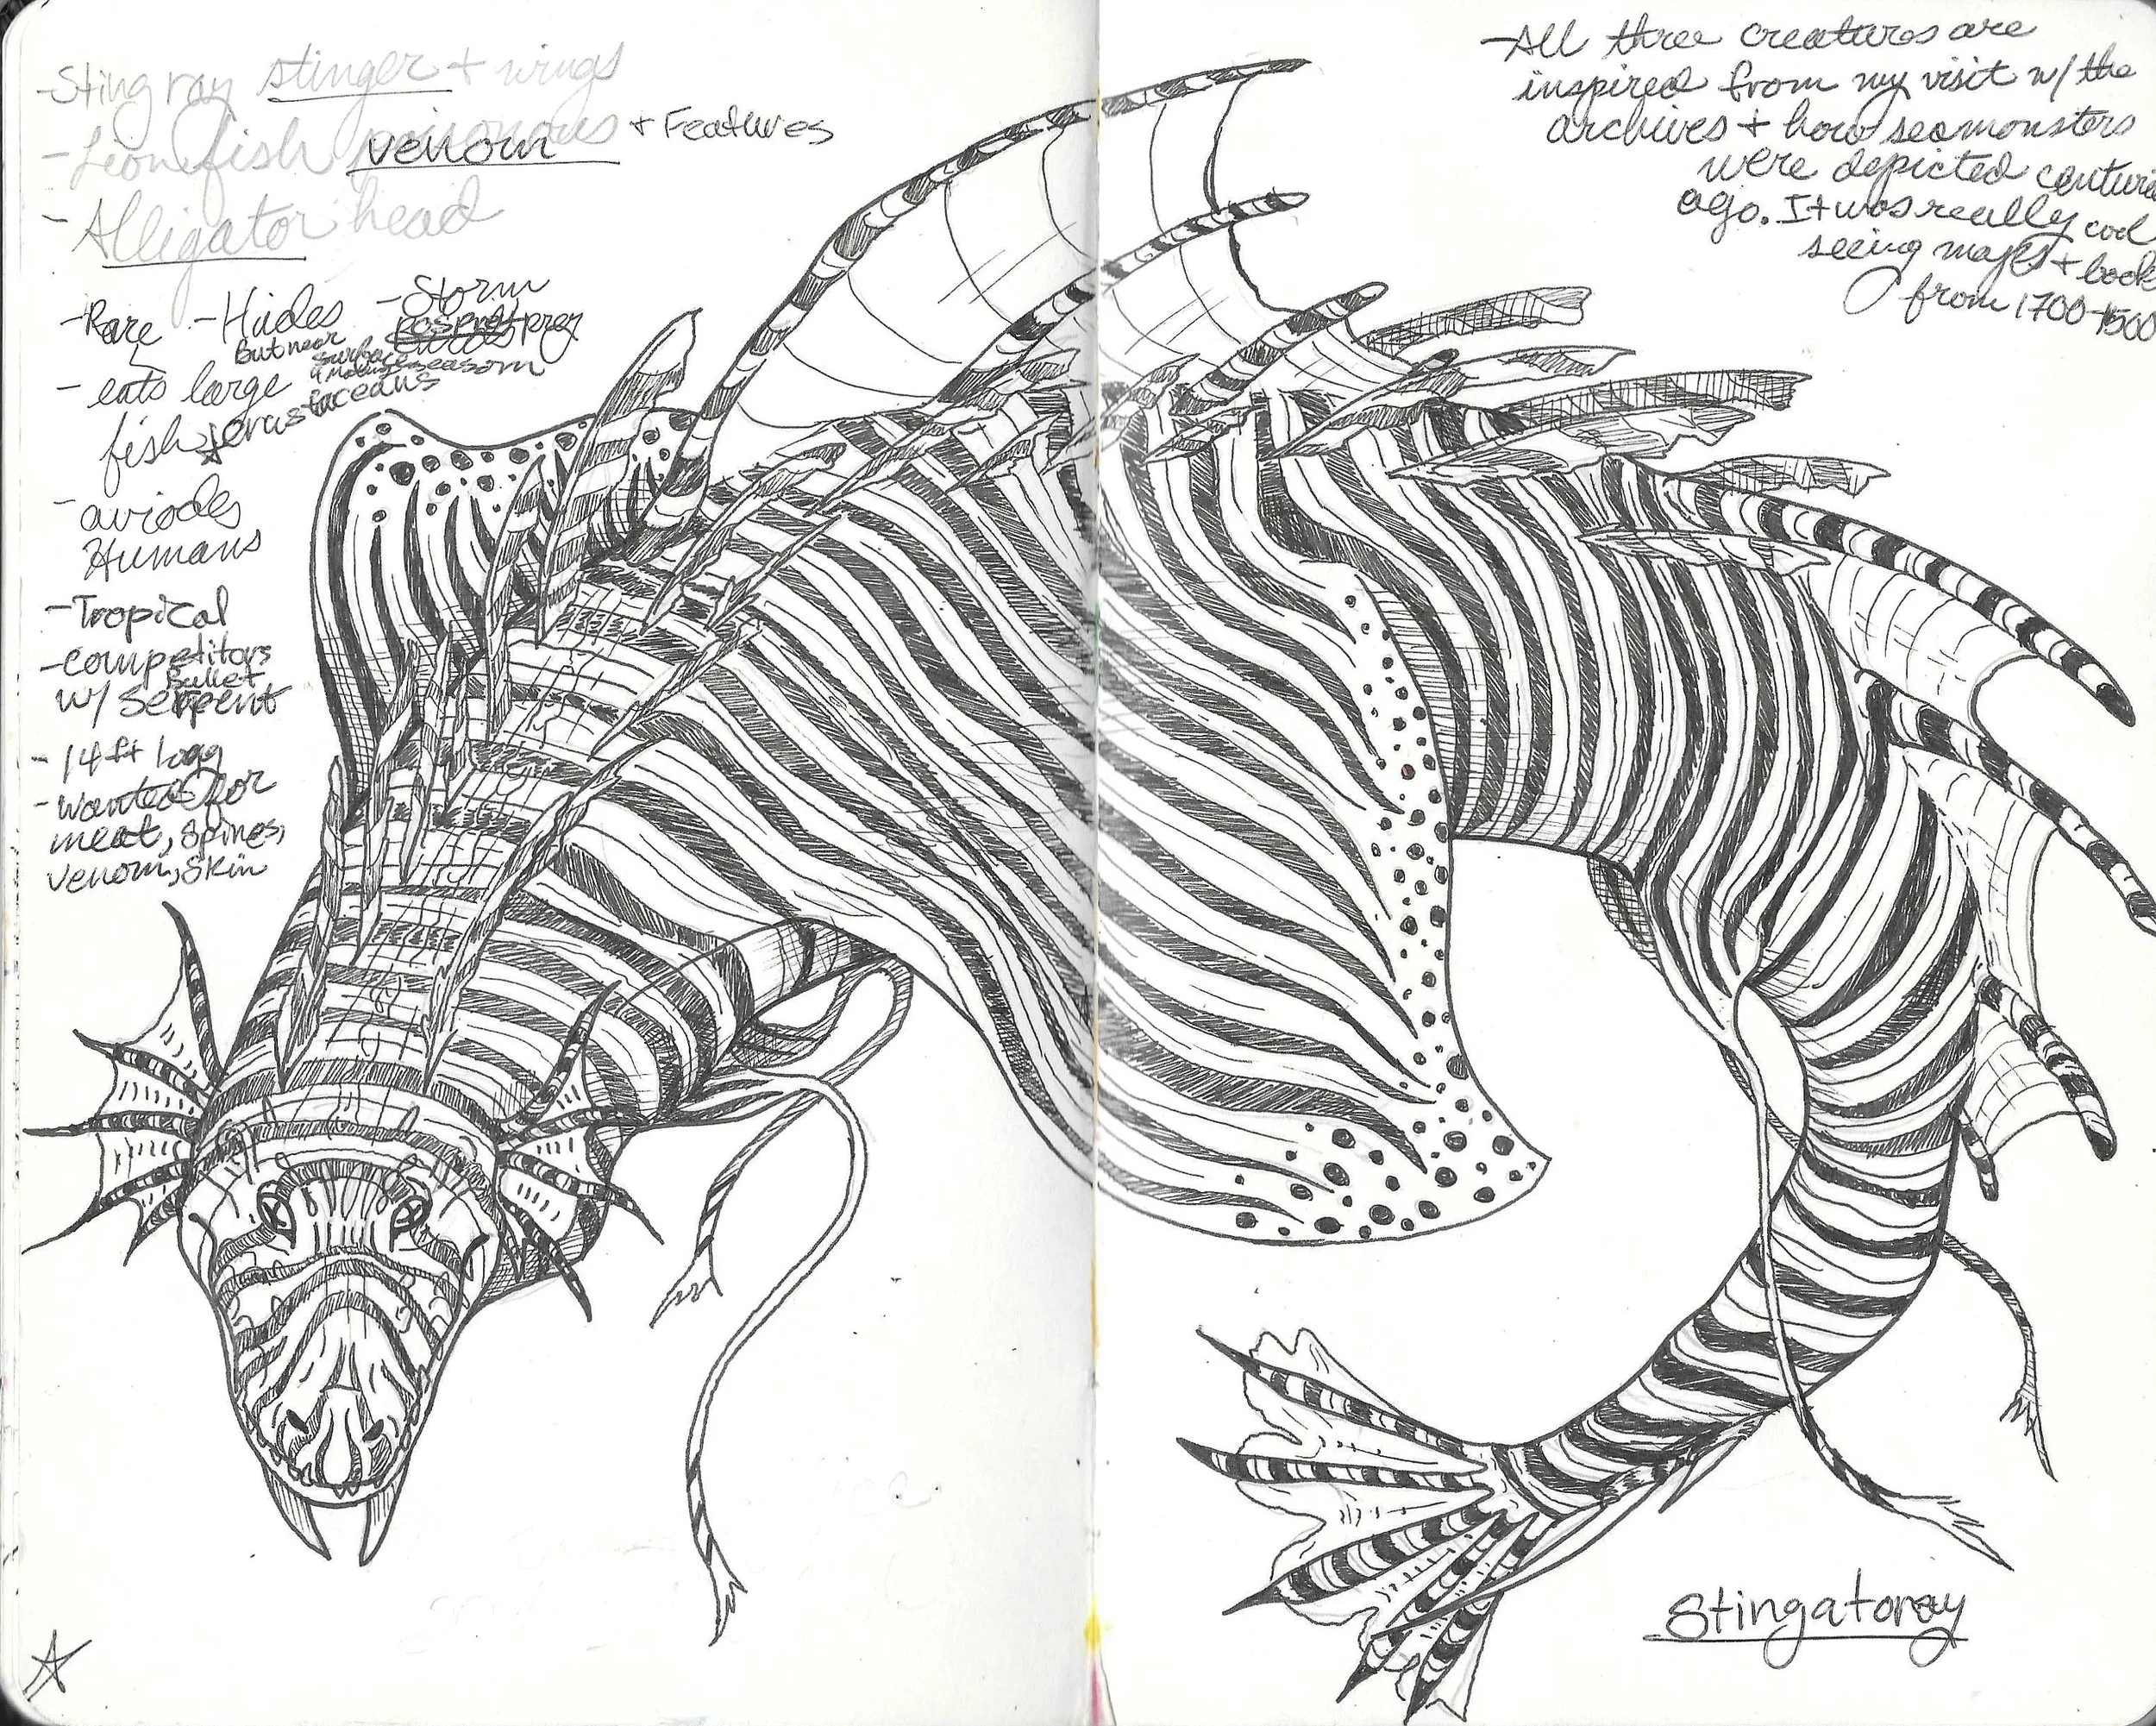 -Sting ray stinger + wings
-Lionfish venom + Features
-Alligator head
-Rare -Hides -Storm
But near surface
-eats large
fish + crustaceans
season
-aviodes
Humans
-Tropical
-competitors
w/ Bullet
Serpent
-14ft long
-wanted for
meat, spines,
venom, skin
-All three creatures are
inspired from my visit w/ the
archives + how seamonsters
were depicted centuries
ago. It was really cool
seeing maps + books
from 1700-1500
Stingatoray